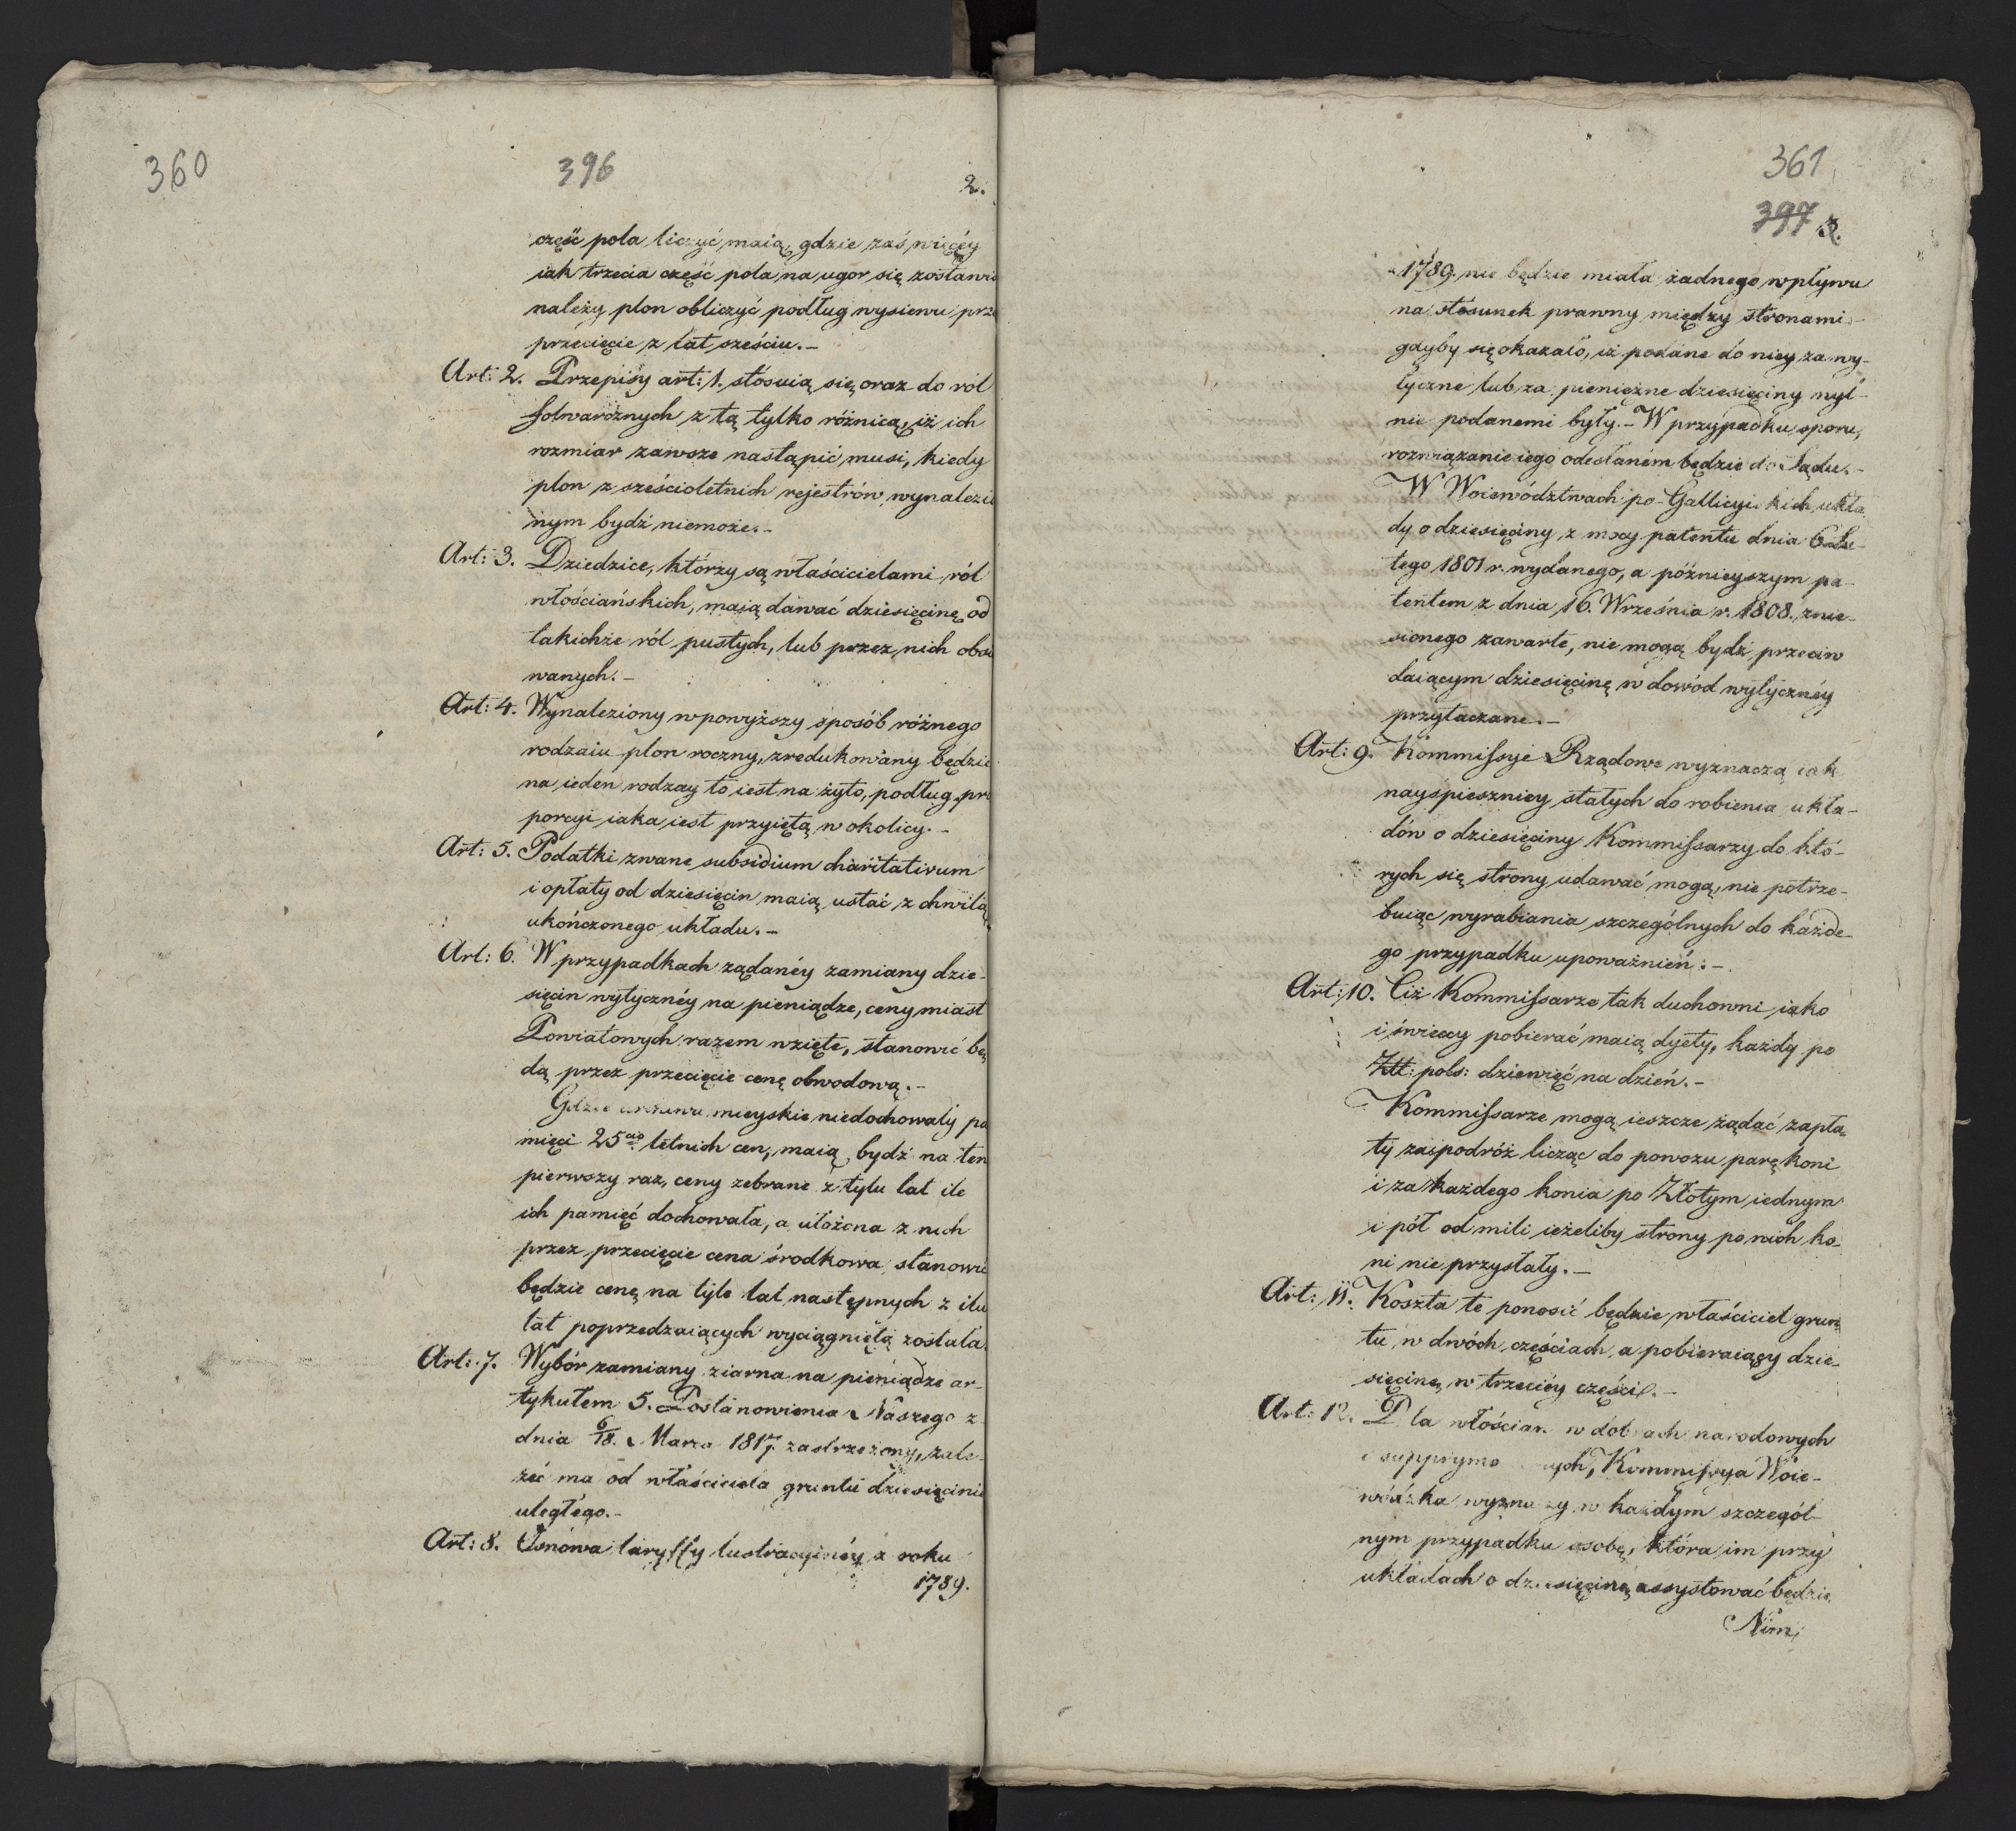 360
396
2.
część pola liczyć maią, gdzie zaś więcéy
iak trzecia część pola na ugor się zostawia
należy plon obliczyć podług wysiewu prze
przecięcie z lat sześciu.–
Art: 2. Przepisy art: 1. stósuią się oraz do ról
folwarcznych z tą tylko różnicą, iż ich
rozmiar zawsze nastąpić musi, kiedy
plon z sześcioletnich rejestrów wynalezio
nym bydź niemoże.–
Art: 3. Dziedzice, którzy są właścicielami ról
włościańskich, maią dawać dziesięcinę od
takichże ról pustych, lub przez nich obsie
wanych.–
Art: 4. Wynaleziony w powyższy sposób różnego
rodzaiu plon roczny, zredukowany będzie
na ieden rodzay to iest na żyto, podług pro
porcyi iaka iest przyiętą w okolicy.–
Art: 5. Podatki zwane subsidium charitativum
i opłaty od dziesięcin maią ustać z chwilą
ukończonego układu.–
Art: 6. W przypadkach żądanéy zamiany dzie-
sięcin wytycznéy na pieniądze, ceny miast
Powiatowych razem wzięte, stanowić bę
dą przez przecięcie cenę obwodową.–
Gdzie mieyskie niedochowały pa
mięci 25cio letnich cen, maią bydź na ten
pierwszy raz, ceny zebrane z tylu lat ile
ich pamięć dochowała, a ułożona z nich
przez przecięcie cena środkowa stanowić
będzie cenę na tyle lat następnych z ilu
lat poprzedzaiących wyciągniętą została.
Art: 7. Wybór zamiany ziarna na pieniądze ar-
tykułem 5. Postanowienia Naszego z
dnia 6/18. Marca 1817 zastrzeżony, zale-
żeć ma od właściciela gruntu dziesięcinie
uległego.–
Art: 8. Osnowa taryffy lustracyinéy z roku
1789.
361
397 3.
1789. nie będzie miała żadnego wpływu
na stósunek prawny między stronami
gdyby się okazało, iż podane do niey za wy-
tyczne lub za pieniężne dziesięciny myl-
nie podanemi były.– W przypadku sporu,
rozwiązanie iego odesłaném będzie do Sądu.–
W Woiewództwach po-Gallicyiskich ukła
dy o dziesięciny, z mocy patentu dnia 6 Lu-
tego 1801 r. wydanego, a późnieyszym pa-
tentem z dnia 16. Września r. 1808. znie-
sionego zawarte, nie mogą bydź przeciw
daiącym dziesięcinę w dowód wytycznéy
przytaczane.–
Art: 9. Kommissye Rządowe wyznaczą iak
nayspieszniey stałych do robienia ukła-
dów o dziesięciny Kommissarzy do któ-
rych się strony udawać mogą, nie potrze-
buiąc wyrabiania szczególnych do każde-
go przypadku upoważnień.–
Art: 10. Ciż Kommissarze tak duchowni iako
i świeccy pobierać maią dyety, każdy po
Złł: pols: dziewięć na dzień.–
Kommissarze mogą ieszcze żądać zapła-
ty za podróż licząc do powozu parę koni
i za każdego konia po Złotym iednym
i pół od mili ieżeliby strony po nich ko-
ni nie przysłały.–
Art: 11. Koszta te ponosić będzie właściciel grun
tu w dwóch częściach, a pobieraiący dzie-
sięcinę, w trzeciéy części.–
Art: 12. Dla włościan w dobrach narodowych
i Kommissya Woie-
wódzka wyznaczy w każdym szczegól-
nym przypadku osobę, która im przy
układach o dziesięcinę assystować będzie.
Nim